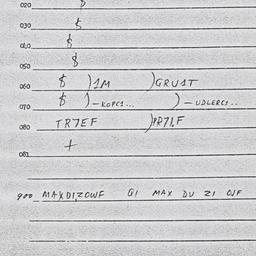 020
030 $
040 $
050 $
060 $ )1M )GRU1T
070 $ )-KOPC1... )-UDLERC1..
080 TR7EF )PR71,F
081 +
900 MAXD1,ZOWF G1 MAX DU Z1 OWF